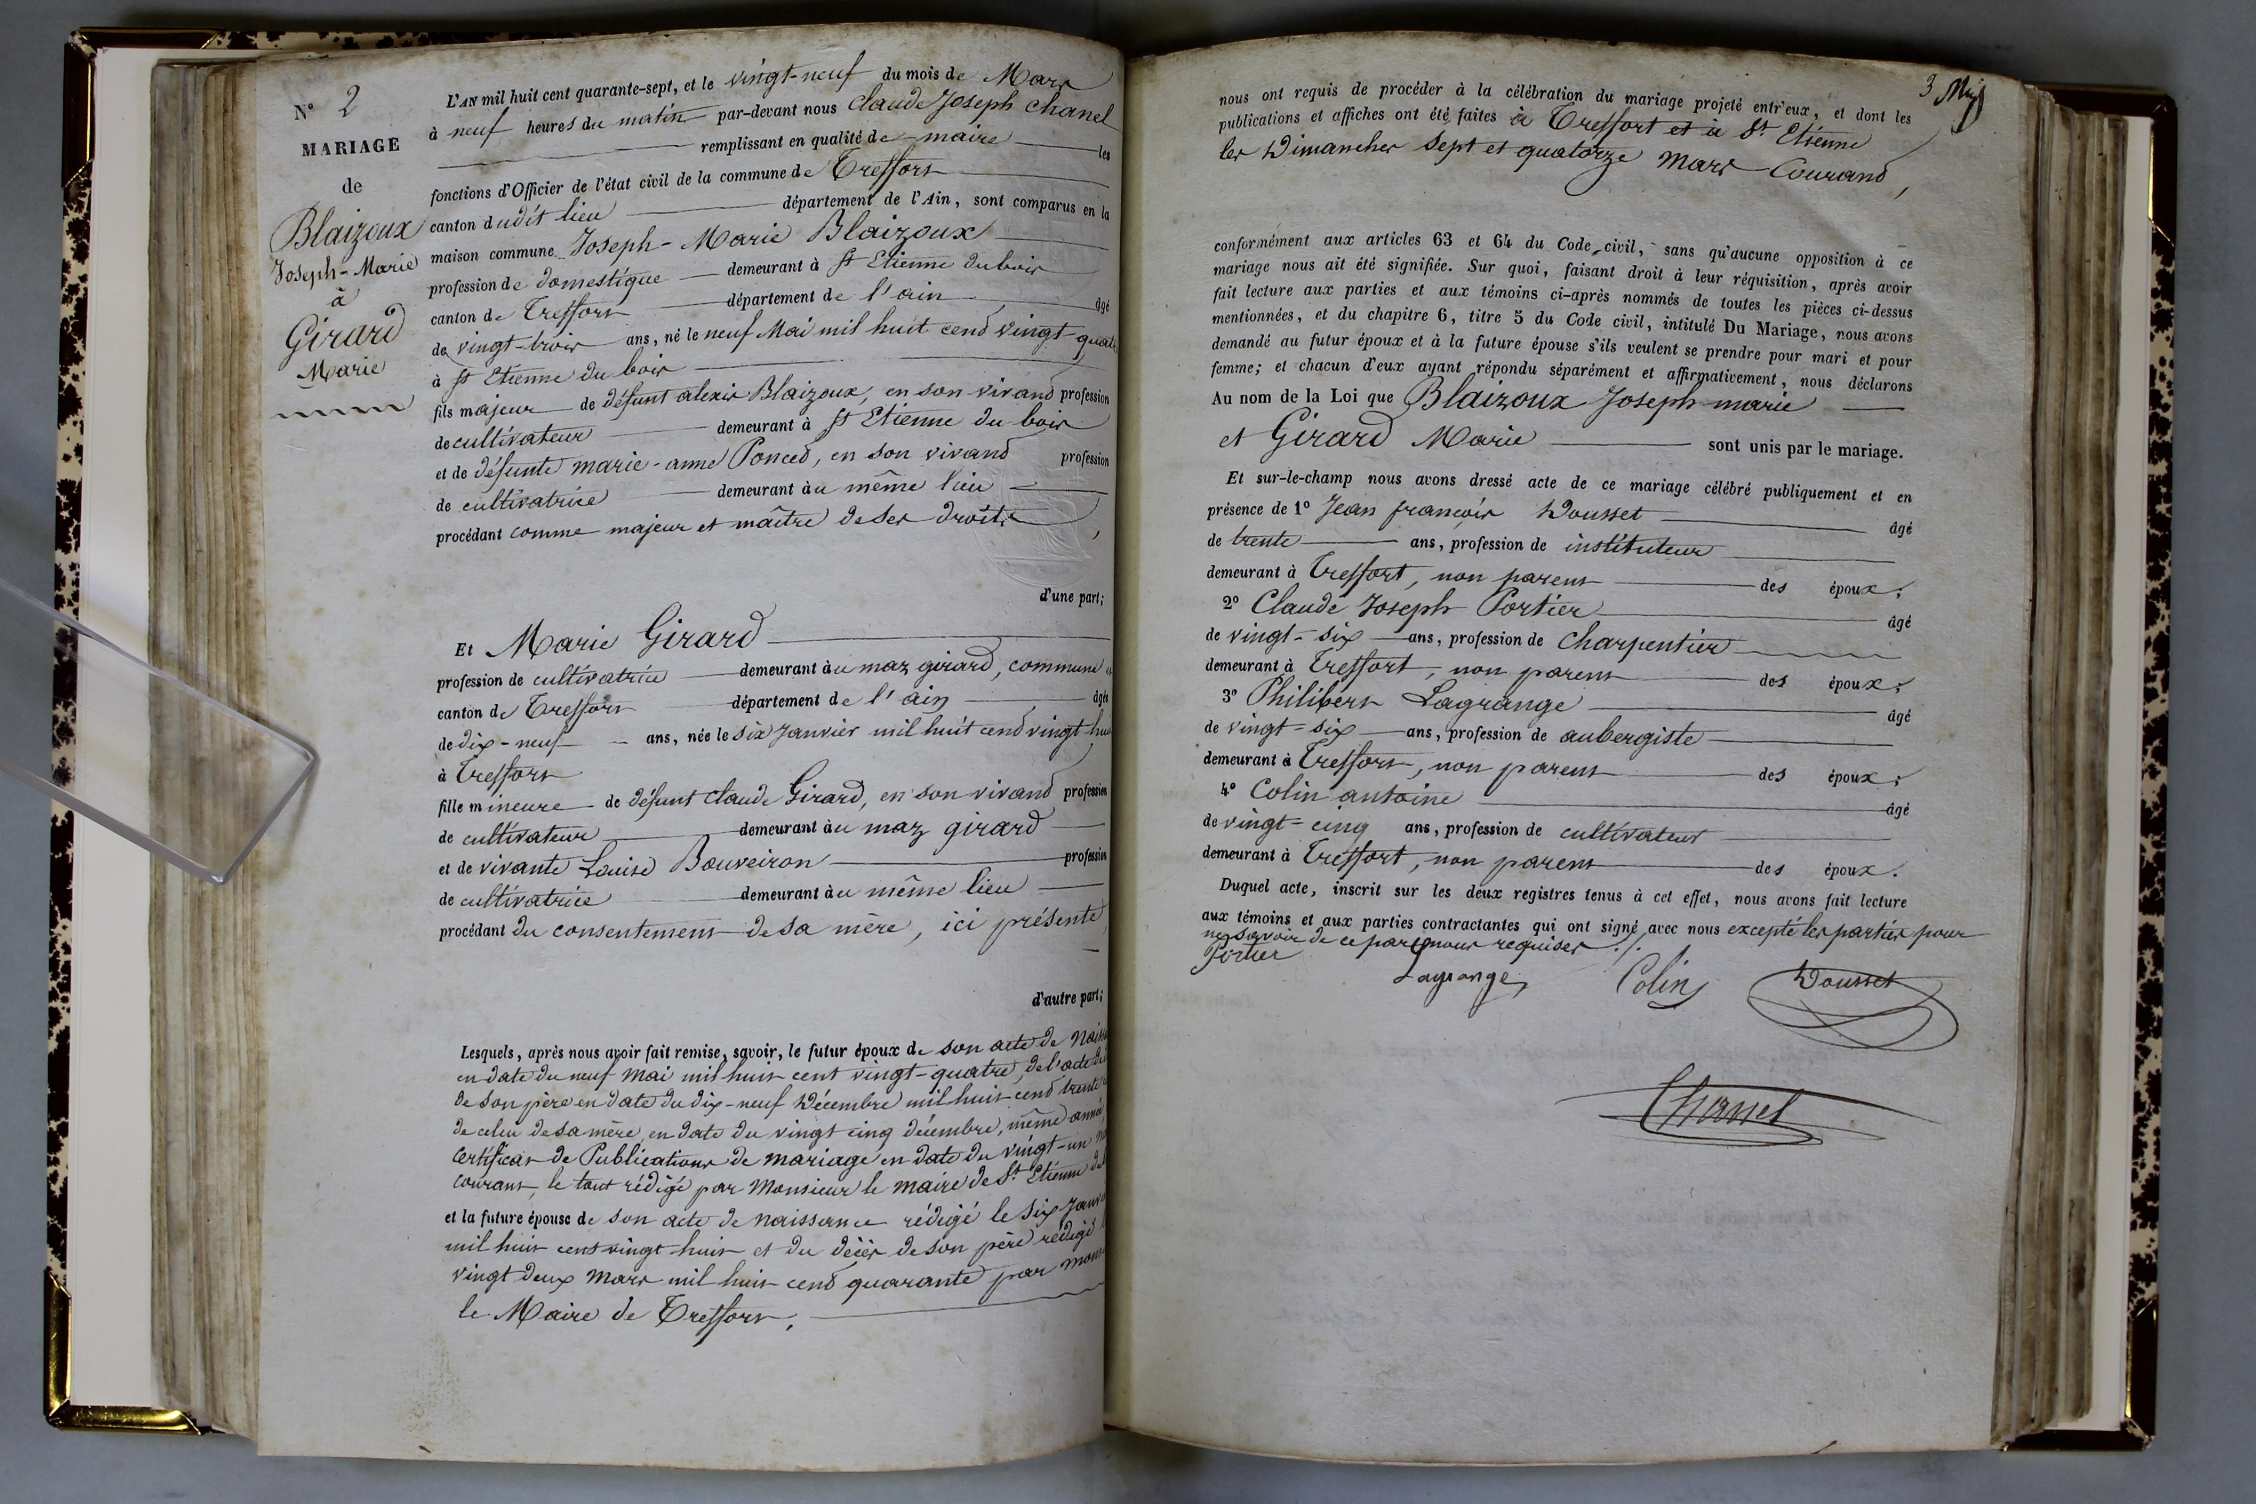 N° 2
MARIAGE
de
Blaizoux
Joseph-Marie
à
Girard
Marie
L'AN mil huit cent quarante-sept, et le vingt-neuf du mois de Mars
à neuf heures du matin par-devant nous Claude Joseph Chanel
remplissant en qualité de maire les
fonctions d'Officier de l'état civil de la commune de Treffort
canton dudit lieu département de l'Ain, sont comparus en la
maison commune Joseph-Marie Blaizoux
profession de domestique demeurant à St Etienne du bois
canton de Treffort département de l'ain âgé
de vingt-trois ans, né le neuf Mai mil huit cent vingt-quat
à St Etienne du bois
fils majeur de défunt alexis Blaizoux, en son vivant profession
de cultivateur demeurant à St Etienne du bois
et de défunte marie-anne Poncet, en son vivant profession
de cultivatrice demeurant au même lieu
procédant comme majeur et maître de ses droits,
d'une part;
Et Marie Girard
profession de cultivatrice demeurant au maz girard, commune
canton de Treffort département de l'ain âgée
de dix-neuf ans, née le six Janvier mil huit cent vingt hui
à Treffort
fille mineure de défunt Claude Girard, en son vivant profession
de cultivateur demeurant au maz girard
et de vivante Louise Bouveiron profession
de cultivatrice demeurant au même lieu
procédant du consentement de sa mère, ici présente
d'autre part;
Lesquels, après nous avoir fait remise, savoir, le futur époux de son acte de Naiss
en date du neuf Mai mil huit cent vingt-quatre, de l'acte de
de son père en date du dix-neuf Décembre mil huit cent trente
de celui de sa mère en date du vingt cinq décembre, même année,
certificat de Publications de mariage en date du vingt-un
courant, le tout rédigé par Monsieur le maire de St Etienne du
et la future épouse de son acte de naissance rédigé le six Janv
mil huit cent vingt huit et du décès de son père rédigé
vingt deux mars mil huit cent quarante par mons
le Maire de Treffort.
3
nous ont requis de procéder à la célébration du mariage projeté entr'eux, et dont les
publications et affiches ont été faites à Treffort et à St Etienne
les Dimanches sept et quatorze mars Courant,
conformément aux articles 63 et 64 du Code civil, sans qu'aucune opposition à ce
mariage nous ait été signifiée. Sur quoi, faisant droit à leur réquisition, après avoir
fait lecture aux parties et aux témoins ci-après nommés de toutes les pièces ci-dessus
mentionnées, et du chapitre 6, titre 5 du Code civil, intitulé Du Mariage, nous avons
demandé au futur époux et à la future épouse s'ils veulent se prendre pour mari et pour
femme; et chacun d'eux ayant répondu séparément et affirmativement, nous déclarons
Au nom de la Loi que Blaizoux Joseph-marie
et Girard Marie sont unis par le mariage.
Et sur-le-champ nous avons dressé acte de ce mariage célébré publiquement et en
présence de 1° Jean françois Dousset âgé
de trente ans, profession de instituteur
demeurant à Treffort, non parent des époux;
2° Claude Joseph Portier âgé
de vingt-six ans, profession de Charpentier
demeurant à Treffort, non parent des époux;
3° Philibert Lagrange âgé
de vingt-six ans, profession de aubergiste
demeurant à Treffort, non parent des époux;
4° Colin antoine âgé
de vingt-cinq ans, profession de cultivateur
demeurant à Treffort, non parent des époux.
Duquel acte, inscrit sur les deux registres tenus à cet effet, nous avons fait lecture
aux témoins et aux parties contractantes qui ont signé avec nous excepté les parties pour
ne savoir de ce par nous requises ./.
Portier Lagrange Colin Dousset
Chanel